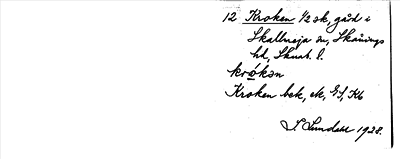 12 Kroken 1/2 sk, gård i
Skallmeja sn, Skånings
hd, Skarab. l.
krókən
Kroken bek, ek, GS, Kb
I. Lundahl 1928.